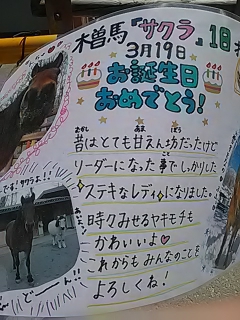 木曽馬『サクラ』18
3月19日
お誕生日
おめでとう!
昔はとても甘えん坊だったけど
リーダーになった事でしっかりした
ステキなレディになりました。
時々みせるヤキモチも
かわいいよ♡
これからも みんなのことを
よろしくね!
です!サクラよ!!
どーん!!